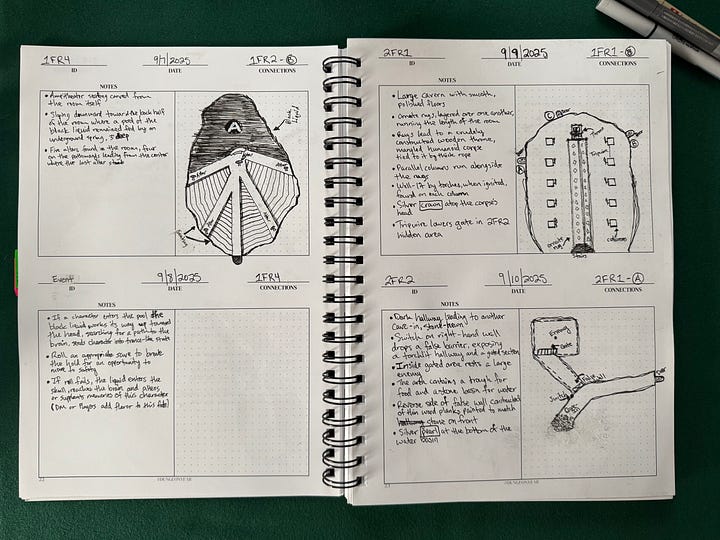 1FR4 9/7/2025 1FR2-Ⓔ
ID DATE CONNECTIONS
NOTES
• Ampitheater seating carved from
the room itself
• Sloping downward toward the back half
of the room where a pool of the
black liquid remained fed by an
underground spring,
• Five altars found in the room, four
on the pathways leading from the center
where the last altar stands
A
Black
liquid
Altar
Seating
Event 9/8/2025 1FR4
ID DATE CONNECTIONS
NOTES
• If a character enters the pool, the
black liquid works its way up toward
the head, searching for a path to the
brain, sends character into trance-like state
• Roll an appropriate save to break
the hold for an opportunity to
move to safety
• If roll fails, the liquid enters the
skull, reaches the brain and alters
or supplants memories of this character
(DM or Players add flavor to this)
DUNGEON YEAR
2FR1 9/9/2025 1FR1-Ⓑ
ID DATE CONNECTIONS
NOTES
• Large cavern with smooth,
polished floors
• Ornate rugs, layered over one another,
running the length of the room
• Rugs lead to a crudely
constructed wooden throne,
mangled humanoid corpse
tied to it by thick rope
• Parallel columns run alongside
the rugs
• Well-lit by torches, when ignited,
found on each column
• Silver crown atop the corpse's
head
• Tripwire lowers gate in 2FR2
hidden area
Throne
Tripwire
Ornate rug
Columns
Stairs
2FR2 9/10/2025 2FR1-Ⓐ
ID DATE CONNECTIONS
NOTES
• Dark hallway leading to another
cave-in,
• Switch on right-hand wall
drops a false barrier, exposing
a torchlit hallway and a gated section
• Inside gated area rests a large
enemy
• The area contains a trough for
food and a stone basin for water
• Reverse side of false wall constructed
of thin wood planks painted to match
stone on front
• Silver pearl at the bottom of the
water basin
Enemy
Gate
False wall
Switch
DUNGEON YEAR